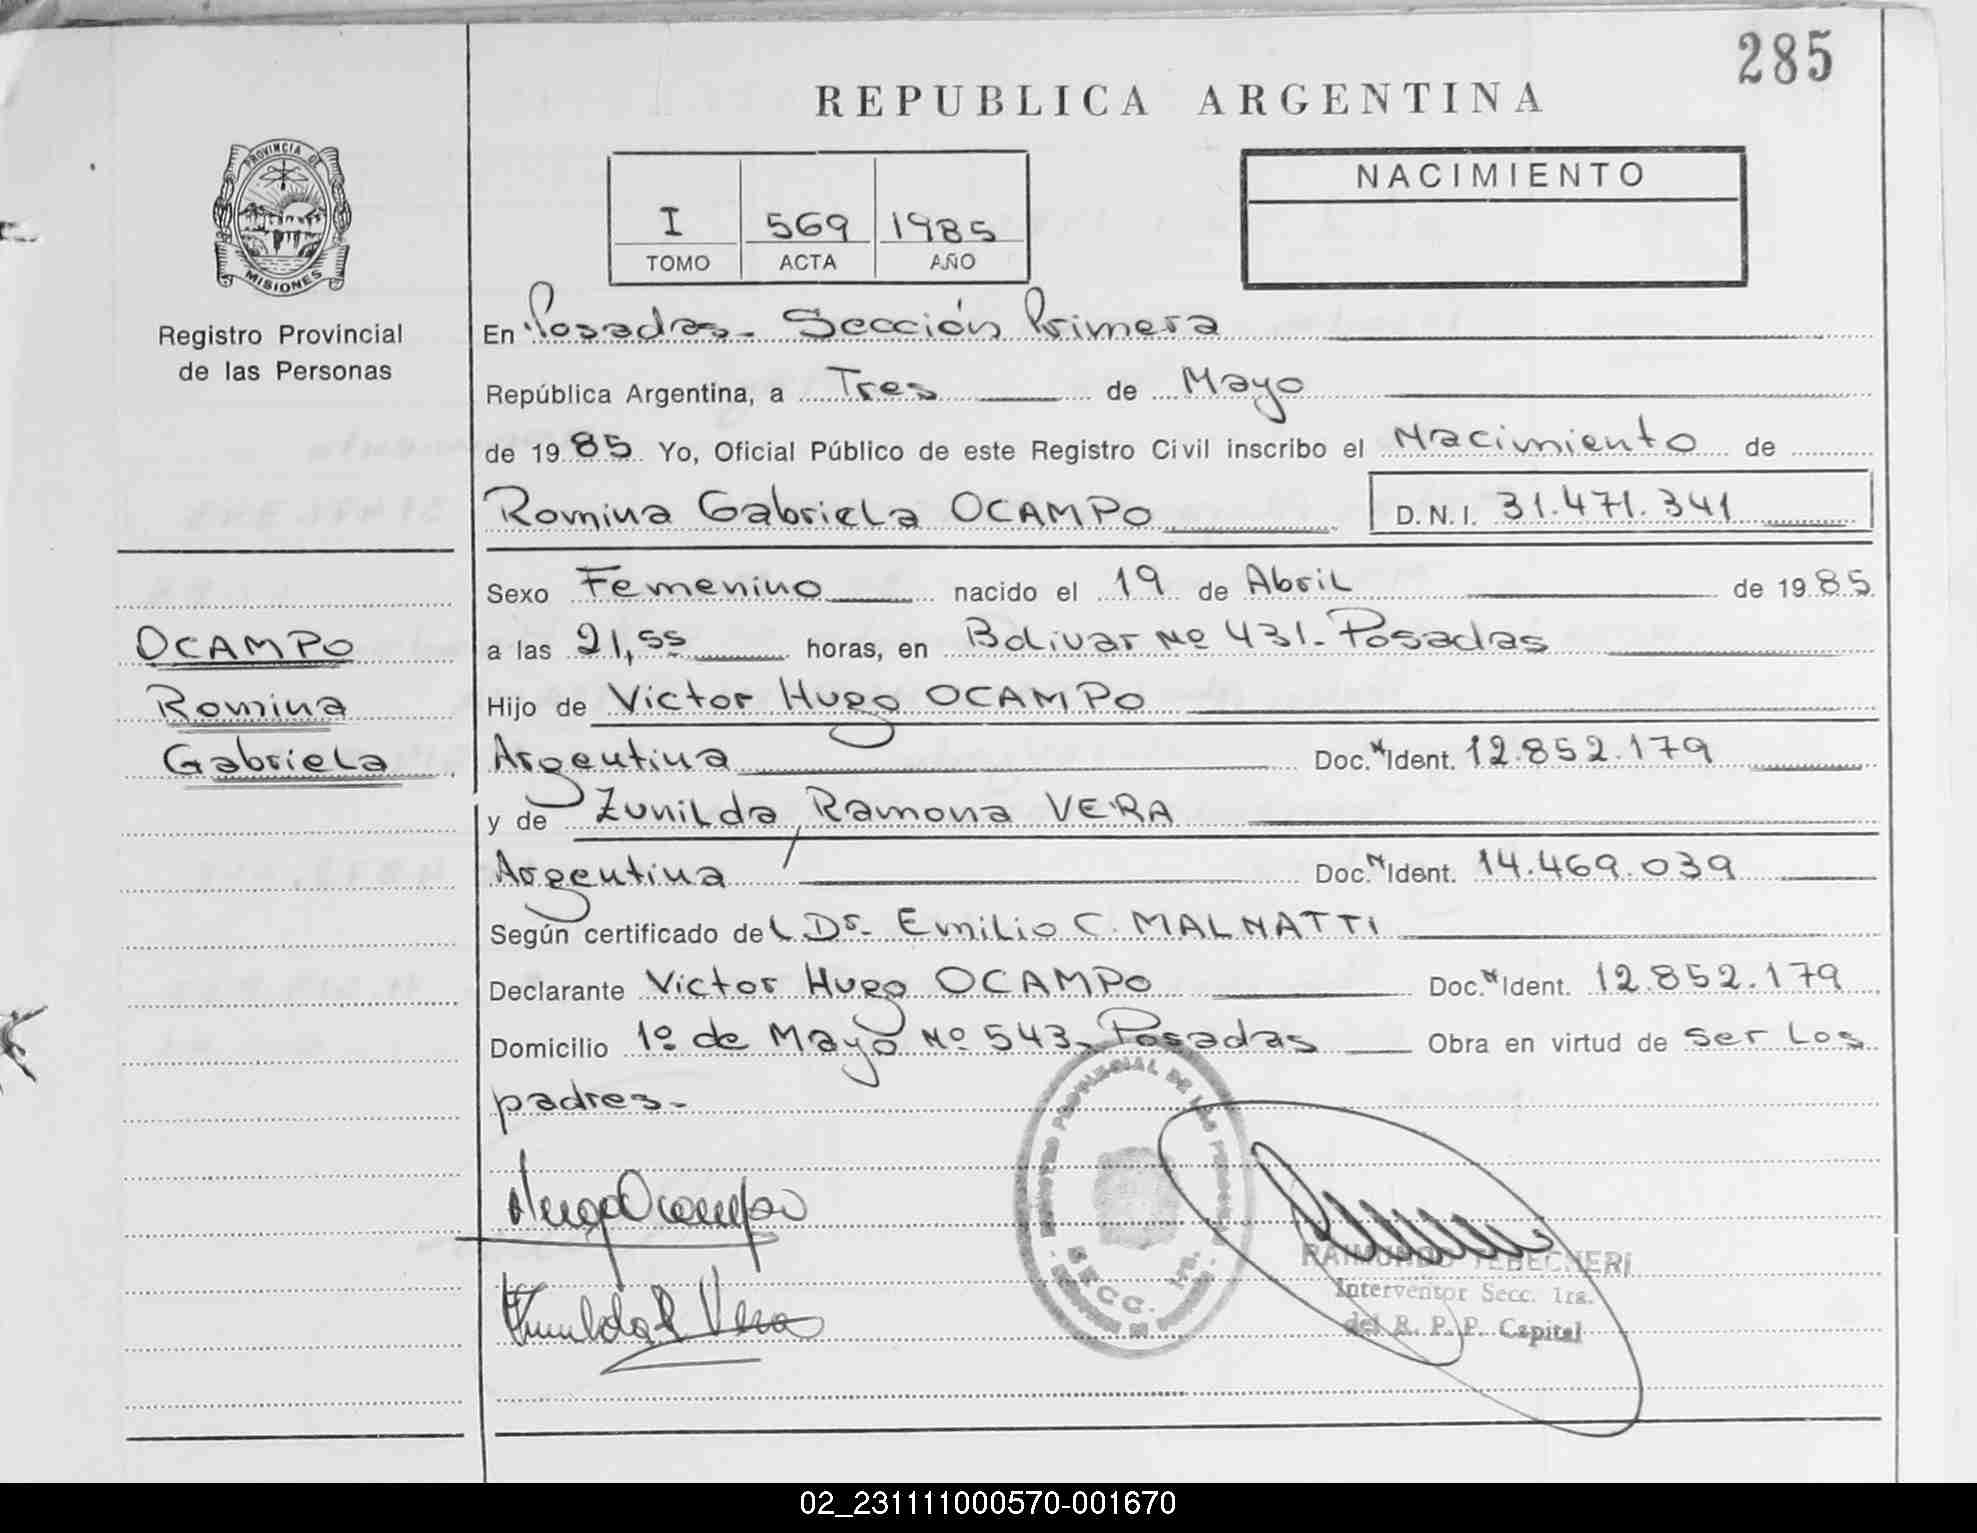 285
REPUBLICA ARGENTINA
PROVINCIA DE
MISIONES
Registro Provincial
de las Personas
I 569 1985
TOMO ACTA AÑO
NACIMIENTO
En Posadas - Sección Primera
República Argentina, a Tres de Mayo
de 19 85 Yo, Oficial Público de este Registro Civil inscribo el Nacimiento de
Romina Gabriela OCAMPO D.N.I. 31.471.341
Sexo Femenino nacido el 19 de Abril de 19 85
OCAMPO
Romina
Gabriela
a las 21,55 horas, en Bolivar Nº 431 - Posadas
Hijo de Victor Hugo OCAMPO
Argentina Doc. N Ident. 12.852.179
y de Zunilda Ramona VERA
Argentina Doc. N Ident. 14.469.039
Según certificado del Dr. Emilio C. MALNATTI
Declarante Victor Hugo OCAMPO Doc. N Ident. 12.852.179
Domicilio 1º de Mayo Nº 543 - Posadas Obra en virtud de ser los
padres -
Hugo Ocampo
Zunilda R Vera
REGISTRO PROVINCIAL DE LAS PERSONAS
SECC. 1ra.
RAIMUNDO
Interventor Secc. 1ra.
del R. P. P. Capital
02_231111000570-001670